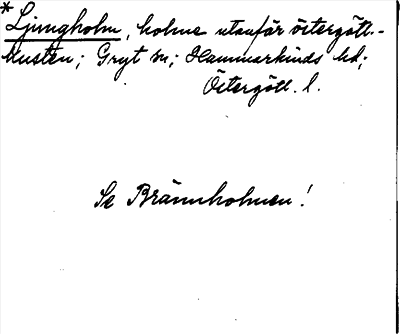 * Ljungholm, holme utanför östergött.-
kusten; Gryt sn; Hammarkinds hd;
Östergötl. l.
Se Brännholmen!